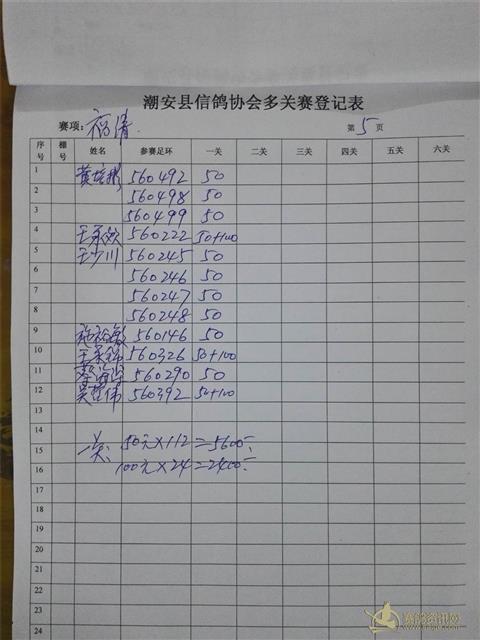 潮安县信鸽协会多关赛登记表
赛项: 福清 第 5 页
序号 棚号 姓名 参赛足环 一关 二关 三关 四关 五关 六关
1 560492 50
2 560498 50
3 560499 50
4 560222 50+100
5 王少川 560245 50
6 560246 50
7 560247 50
8 560248 50
9 560146 50
10 560326 50+100
11 560290 50
12 560392 50+100
13
14
15 一关: 50元×112=5600元
16 100元×24=2400元
17
18
19
20
21
22
23
24